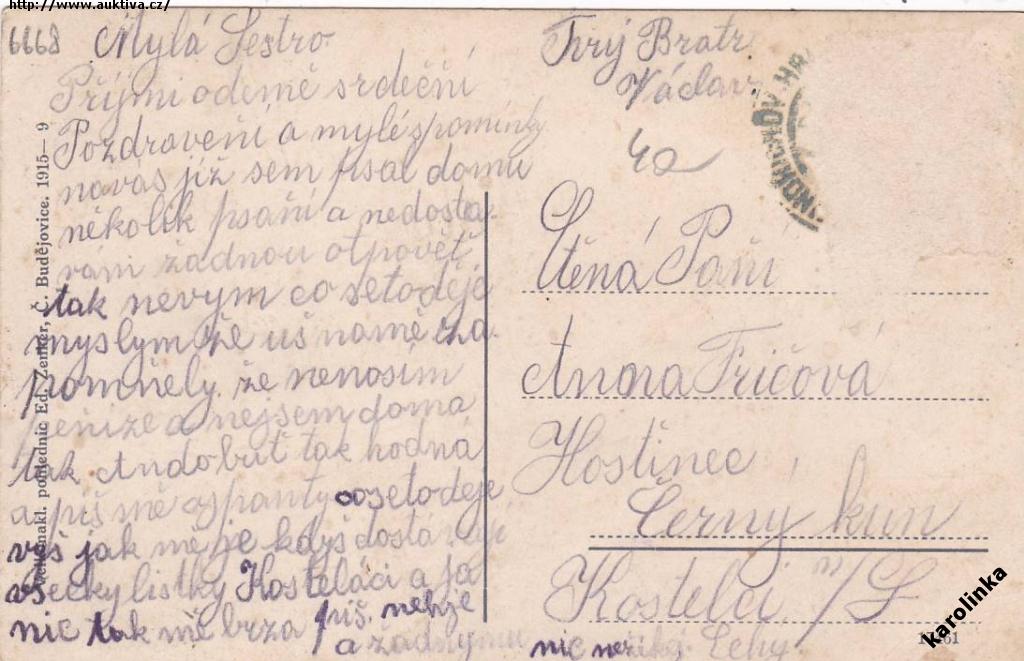 http://www.auktiva.cz/
6668
Mylá Sestro
Příjmi odemě srdeční
Pozdraveňí a mylé spomínky
navas již sem psal domu
několik psaňí a nedostá-
vám žádnou otpověť
tak nevym co setoděje
myslym že uš namě za
pomněly že nenosím
penize a nejsem doma
tak Ando buť tak hodná
a piš mě cosetoděje
vyš jak mě je když dostávají
všecky listky Kosteláci a ja
nic tak mě brzo piš. nehje
a žádnýmu nic neřikej
Tvůj Bratr
Václav
Ctěná Paňí
Anna Fričová
Hostinec
Černý kun
Kostelci n/L
Velkonakl. pohlednic Ed. Zenker, Č. Budějovice. 1915—9
karolinka